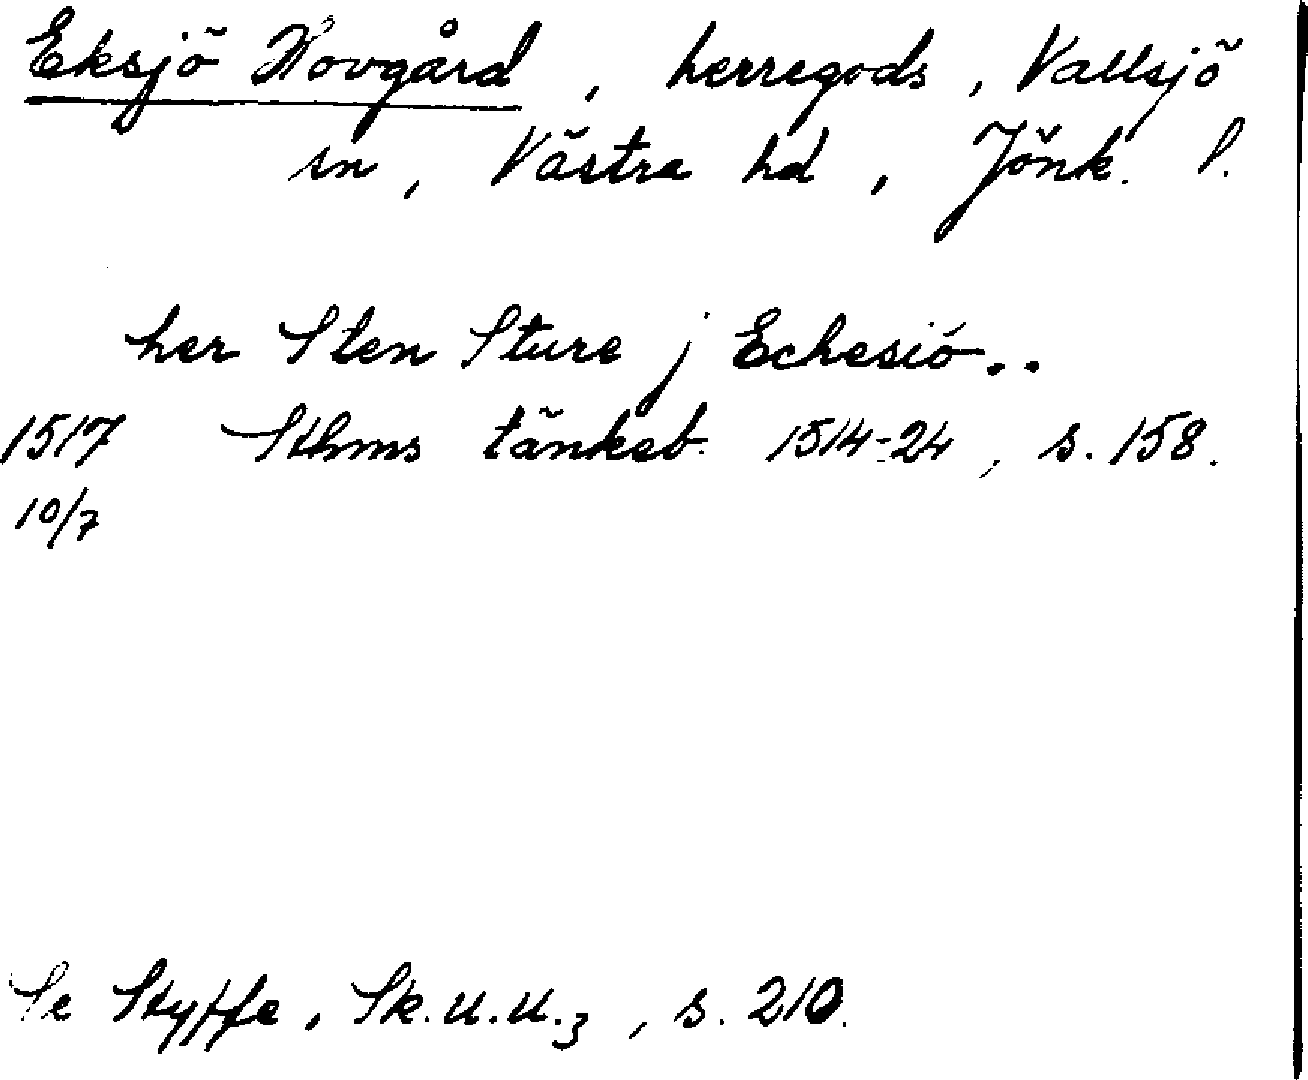 Eksjö Hovgård, herregods, Vallsjö
sn, Västra hd, Jönk. l.
her Sten Sture j Echesiö..
1517 Sthms tänkeb. 1514-24, s. 158.
10/7
Se Styffe, Sk.u.u.3, s. 210.